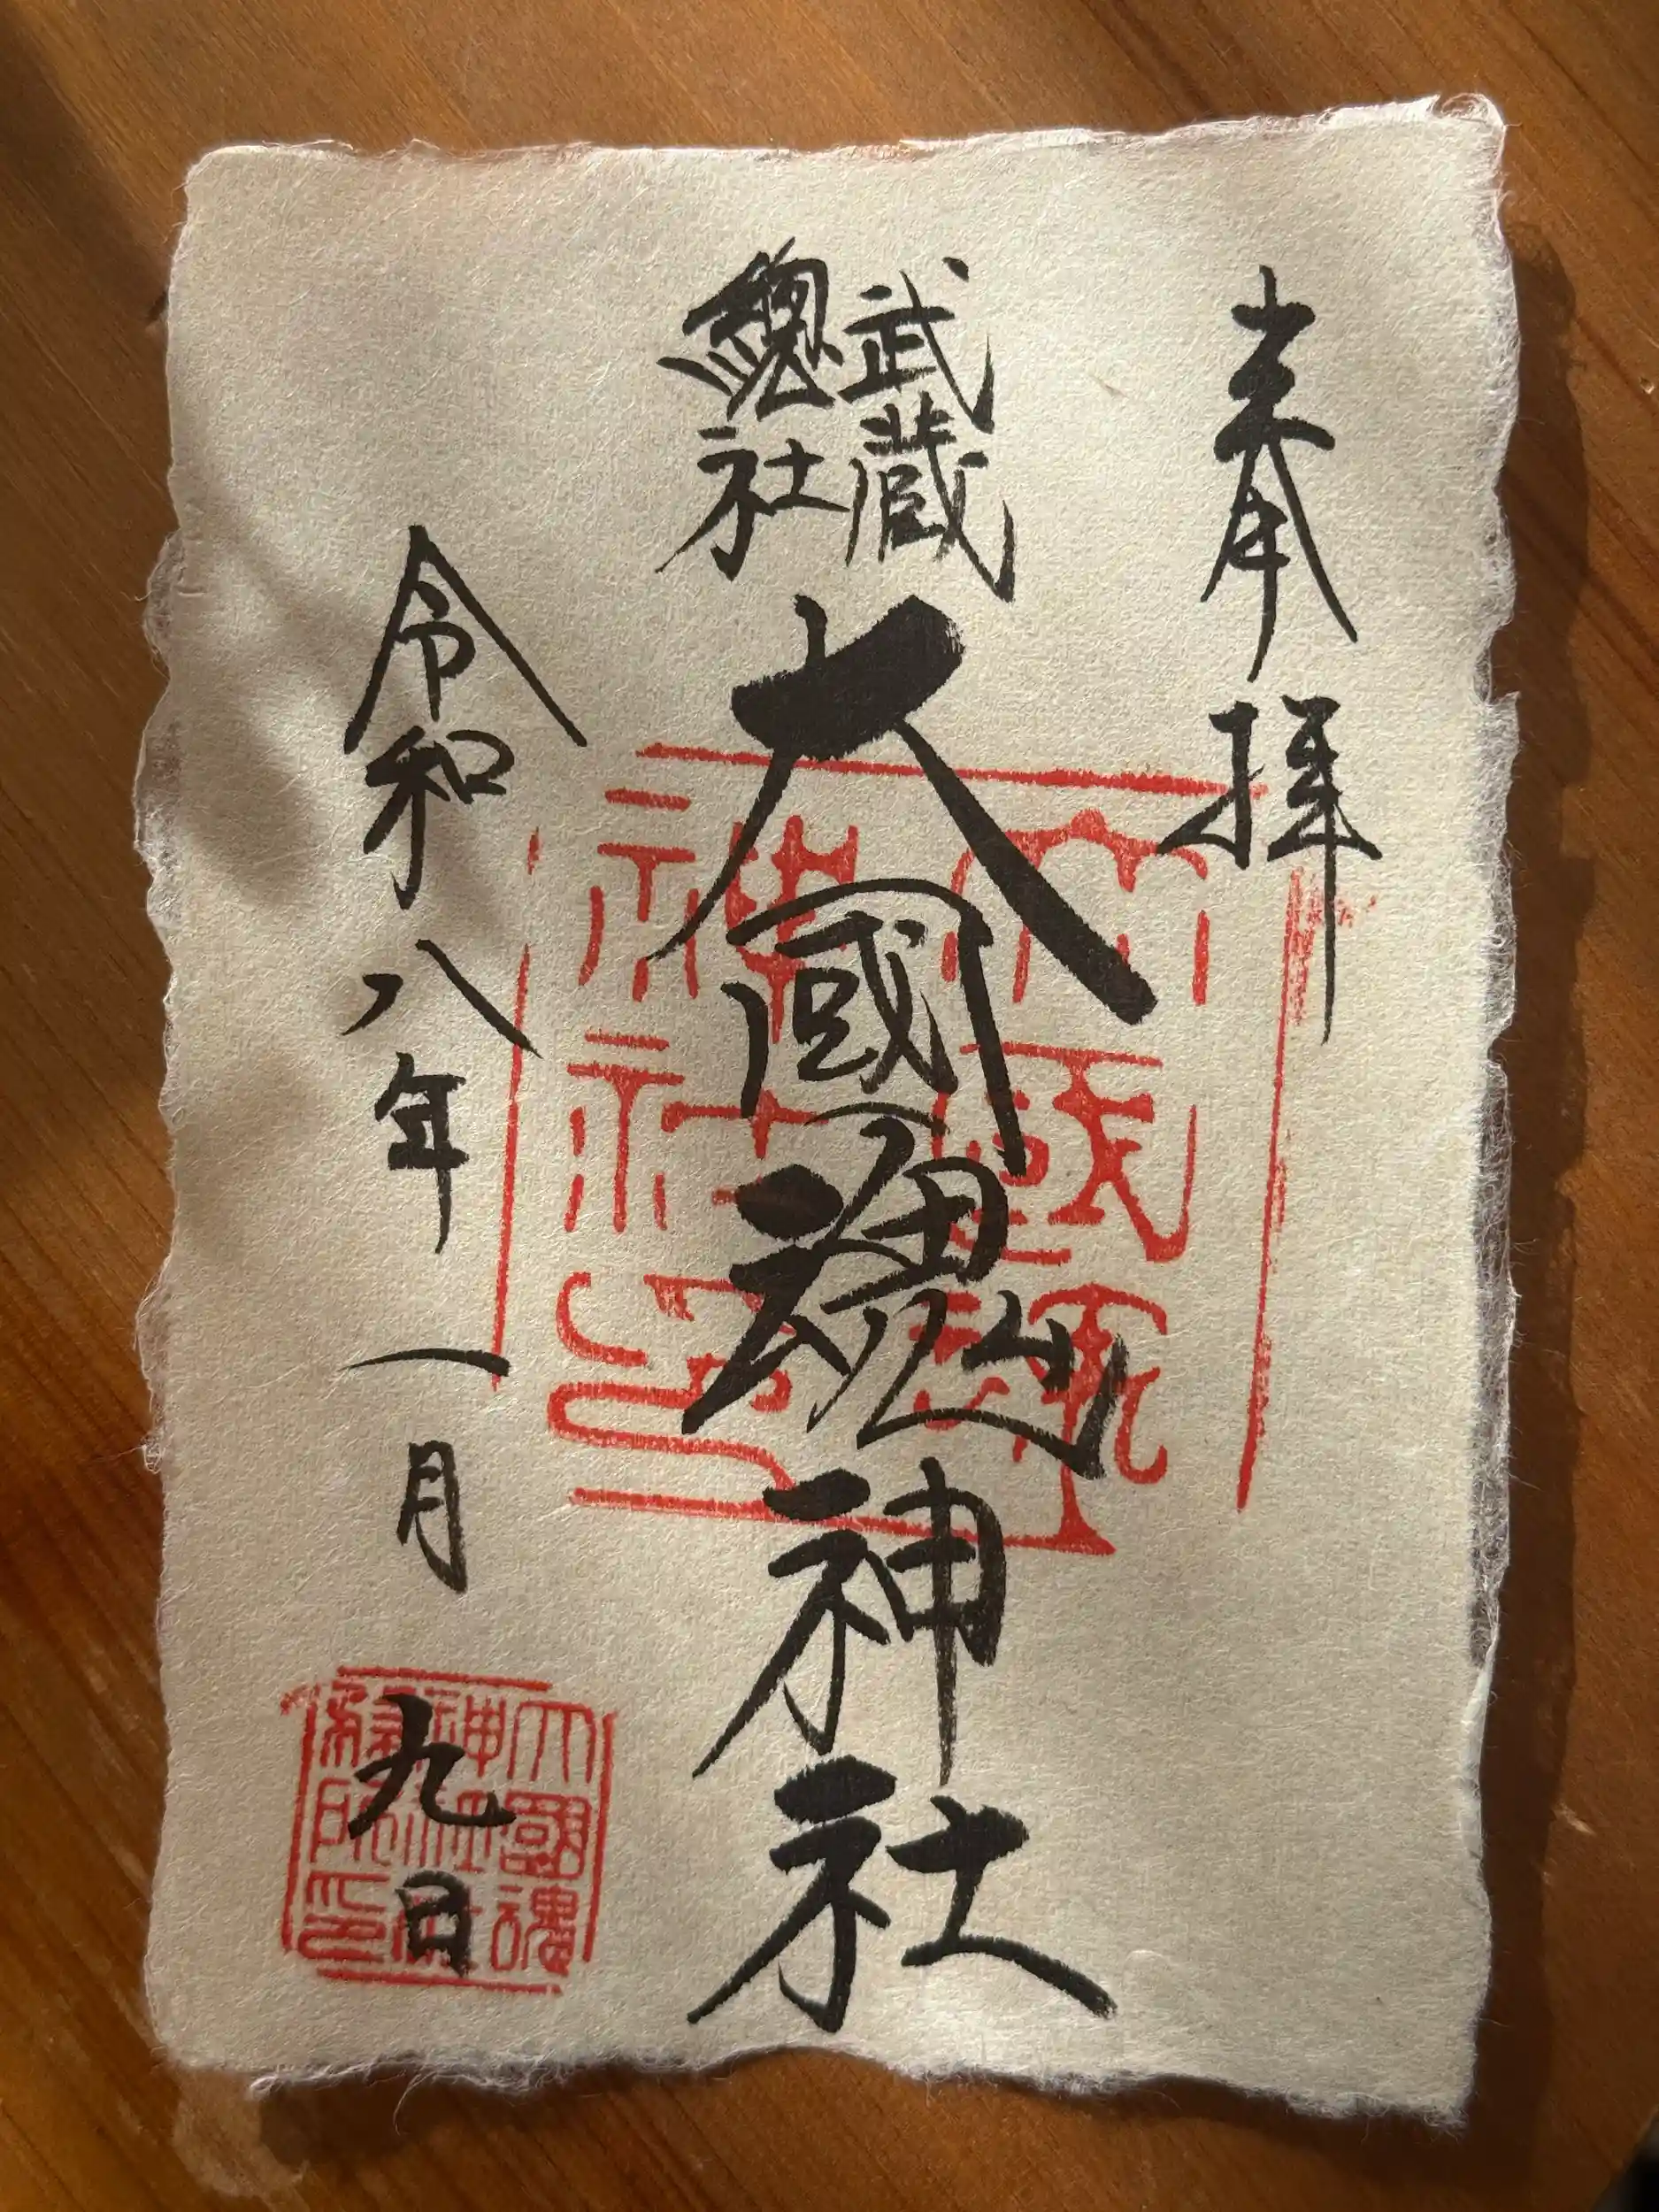 奉拝
武蔵
總社
大國魂神社
令和八年一月九日
大國魂
神社印
大國魂
神社
印